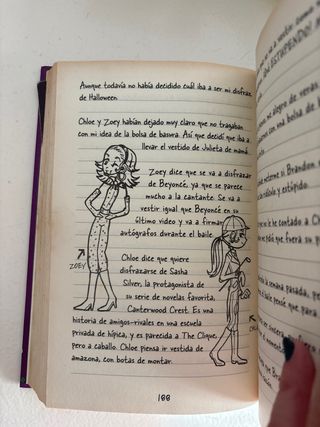 Aunque todavía no había decidido cuál iba a ser mi disfraz
de Halloween.
Chloe y Zoey habían dejado muy claro que no tragaban
con mi idea de la bolsa de basura. Así que decidí que iba a
llevar el vestido de Julieta de mamá.
Zoey dice que se va a disfrazar
de Beyoncé, ya que se parece
mucho a la cantante. Se va a
vestir igual que Beyoncé en su
último video y va a firmar
autógrafos durante el baile.
ZOEY
Chloe dice que quiere
disfrazarse de Sasha
Silver, la protagonista de
su serie de novelas favorita,
Canterwood Crest. Es una
historia de amigos-rivales en una escuela
privada de hípica, y es parecida a The Clique,
pero a caballo. Chloe piensa ir vestida de
amazona, con botas de montar.
188
¡ESTUPENDO!
me alegro de veras
con una bolsa de
Brandon
ridícula y estúpido
he contado a
que fuera su
semana pasada,
pensé que para